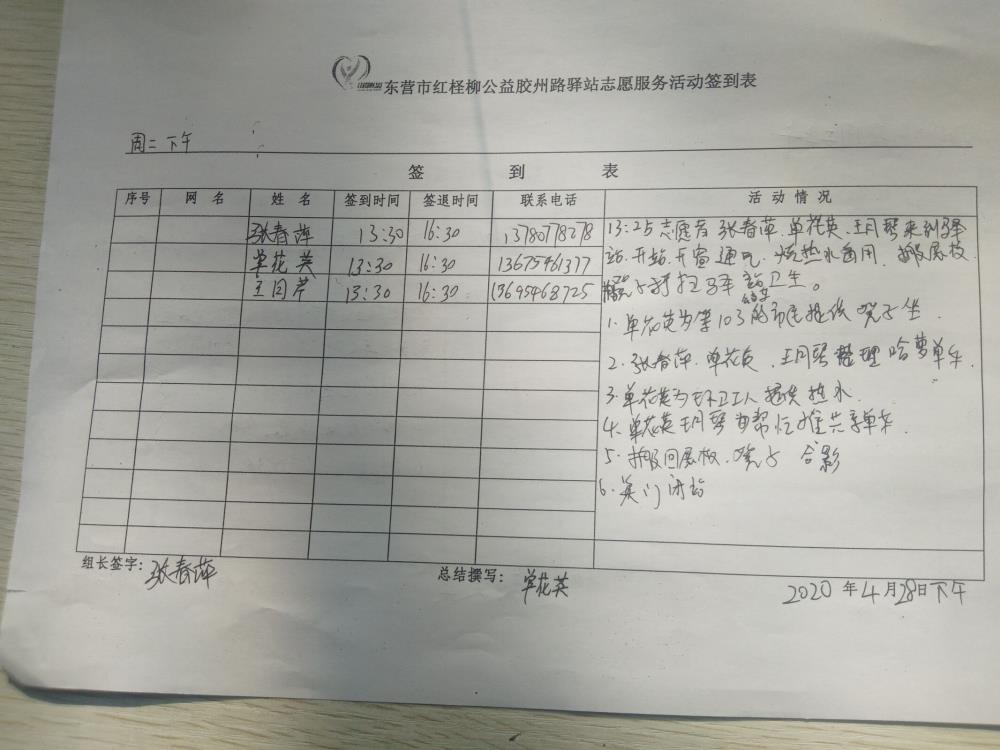 东营市红柽柳公益胶州路驿站志愿服务活动签到表
周二下午
签 到 表
序号 网 名 姓 名 签到时间 签退时间 联系电话 活 动 情 况
张春萍 13:30 16:30 13780778278
单花英 13:30 16:30 13675461377
王同芹 13:30 16:30 13695468725
13:25志愿者 张春萍.单花英.王月琴来到驿
站.开站.开窗通气.烧热水备用.搬展板
凳子打扫驿站卫生。
1.单花英为等103的市民提供凳子坐.
2.张春萍.单花英.王月琴整理哈萝单车.
3.单花英为环卫工人提供热水.
4.单花英王月琴帮忙推共享单车.
5.搬回展板.凳子 合影
6.关门闭站
组长签字: 张春萍 总结撰写: 单花英 2020年4月28日下午